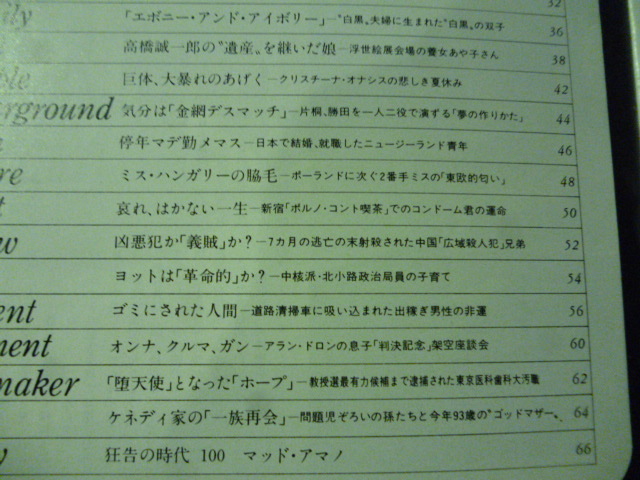 32
「エボニー・アンド・アイボリー」−“白黒„夫婦に生まれた“白黒„の双子 36
高橋誠一郎の“遺産„を継いだ娘−浮世絵展会場の養女あや子さん 38
巨体、大暴れのあげく−クリスチーナ・オナシスの悲しき夏休み 42
erground 気分は「金網デスマッチ」−片桐、勝田を一人二役で演ずる「夢の作りかた」 44
停年マデ勤メマス−日本で結婚、就職したニュージーランド青年 46
re ミス・ハンガリーの脇毛−ポーランドに次ぐ2番手ミスの「東欧的匂い」 48
t 哀れ、はかない一生−新宿「ポルノ・コント喫茶」でのコンドーム君の運命 50
w 凶悪犯か「義賊」か?−7カ月の逃亡の末射殺された中国「広域殺人犯」兄弟 52
ヨットは「革命的」か?−中核派・北小路政治局員の子育て 54
ent ゴミにされた人間−道路清掃車に吸い込まれた出稼ぎ男性の非運 56
ment オンナ、クルマ、ガン−アラン・ドロンの息子「判決記念」架空座談会 60
maker 「堕天使」となった「ホープ」−教授選最有力候補まで逮捕された東京医科歯科大汚職 62
ケネディ家の「一族再会」−問題児ぞろいの孫たちと今年93歳の“ゴッドマザー„ 64
y 狂告の時代 100 マッド・アマノ 66